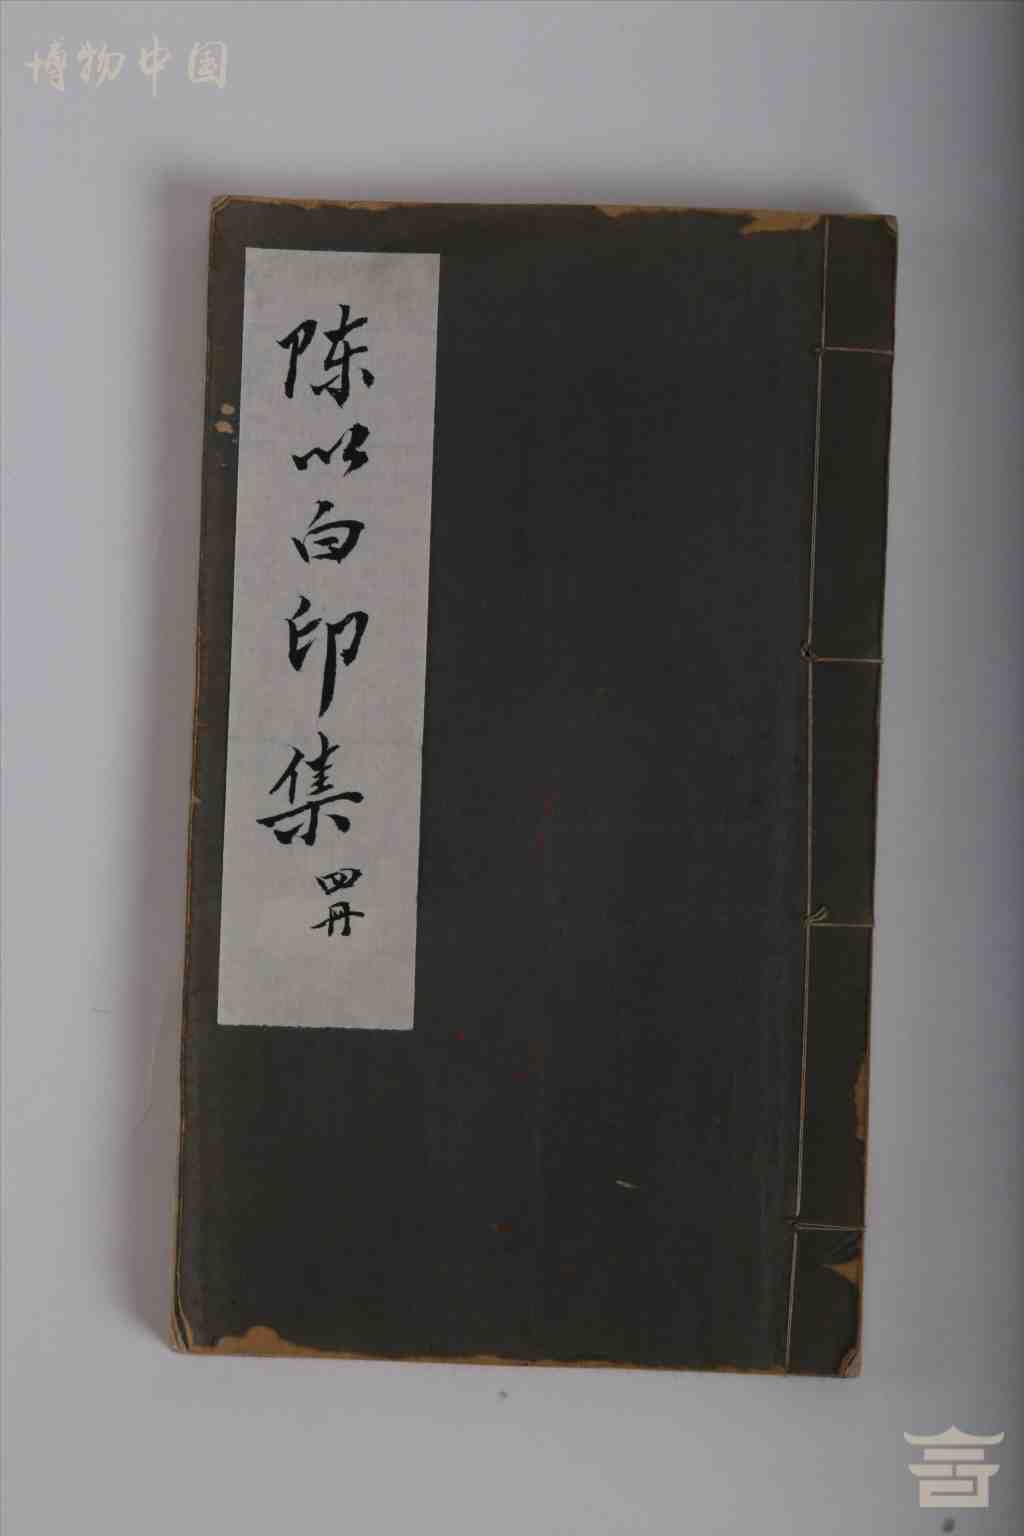 博物中国
陈以白印集
四册